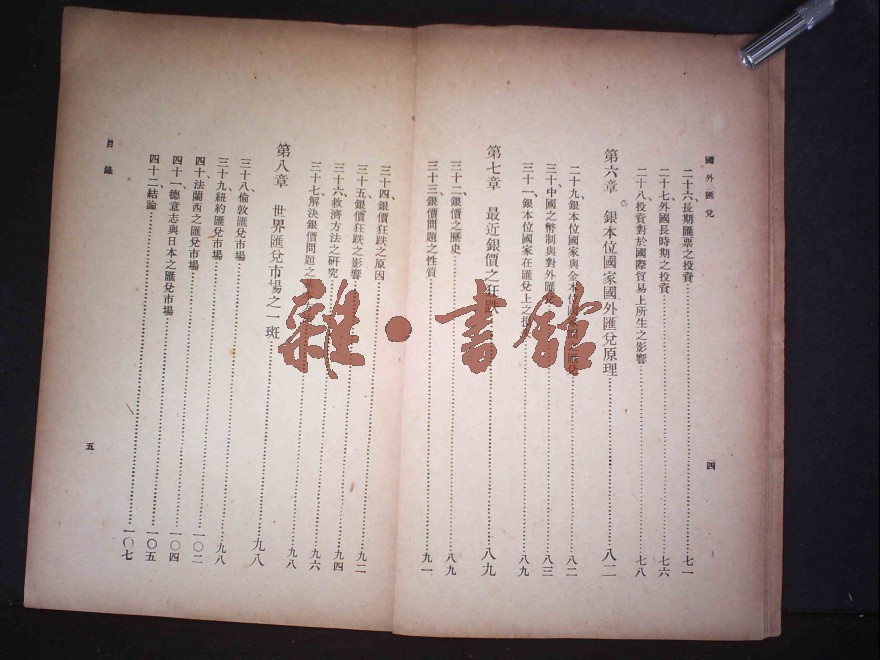 國外匯兌
二十六、長期匯票之投資……七一
二十七、外國長時期之投資……七六
二十八、投資對於國際貿易上所生之影響……七八
第六章 銀本位國家國外匯兌原理……八二
二十九、銀本位國家與金本位國之匯兌……八二
三十、中國之幣制與對外匯兌……八三
三十一、銀本位國家在匯兌上之……八九
第七章 最近銀價之狂跌……八九
三十二、銀價之歷史……八九
三十三、銀價問題之性質……九一
四
目錄
三十四、銀價狂跌之原因……九二
三十五、銀價狂跌之影響……九四
三十六、救濟方法之研究……九六
三十七、解決銀價問題之……九八
第八章 世界匯兌市場之一斑……九八
三十八、倫敦匯兌市場……九八
三十九、紐約匯兌市場……一〇二
四十、法蘭西之匯兌市場……一〇四
四十一、德意志與日本之匯兌市場……一〇五
四十二、結論……一〇七
五
雜・書館